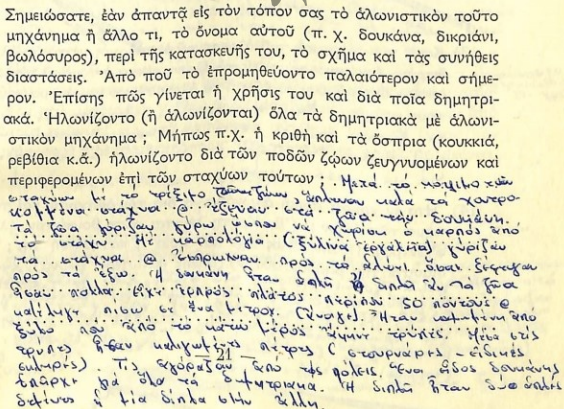 Σημειώσατε, ἐὰν ἀπαντᾷ εἰς τὸν τόπον σας τὸ ἁλωνιστικὸν τοῦτο
μηχάνημα ἢ ἄλλο τι, τὸ ὄνομα αὐτοῦ (π. χ. δουκάνα, δικριάνι,
βωλόσυρος), περὶ τῆς κατασκευῆς του, τὸ σχῆμα καὶ τὰς συνήθεις
διαστάσεις. Ἀπὸ ποῦ τὸ ἐπρομηθεύοντο παλαιότερον καὶ σήμε-
ρον. Ἐπίσης πῶς γίνεται ἡ χρῆσις του καὶ διὰ ποῖα δημητρι-
ακά. Ἡλωνίζοντο (ἢ ἁλωνίζονται) ὅλα τὰ δημητριακὰ μὲ ἁλωνι-
στικὸν μηχάνημα ; Μήπως π.χ. ἡ κριθὴ καὶ τὰ ὄσπρια (κουκκιά,
ρεβίθια κ.ἄ.) ἡλωνίζοντο διὰ τῶν ποδῶν ζῴων ζευγνυομένων καὶ
περιφερομένων ἐπὶ τῶν σταχύων τούτων ; Μετά τό
σταχυών μέ τό τρίξιμο καλά τά χοντρο
κομμένα στάχυα @ έζευαν στά ζώα τήν δουκάνη.
Τά ζώα γύριζαν γύρω ώσπου νά χωρίσει ο καρπός από
τό στάχυ. Μέ καρπολόγια (ξύλινα εργαλεία) γύριζαν
τά στάχυα @ έσπρωχναν πρός τό αλώνι όσα ξέφευγαν
πρός τά έξω. Η δουκάνη ήταν διπλή άν τά ζώα
ήσαν πολλά. Είχε εμπρός πλάτος περίπου 50 πόντους @
κατέληγε πίσω σε ένα μέτρο. Ήταν από
ξύλο που από τό κάτω μέρος είχαν τρύπες. Μέσα στίς
τρύπες ήσαν πέτρες (στουρνάρες - ειδικές
σκληρές). Τις αγόραζαν από τάς πόλεις. Ένα είδος δουκάνης
υπάρχει γιά όλα τά δημητριακά. Η διπλή ήταν δύο απλές
δεμένες η μία δίπλα στήν άλλη.
— 21 —